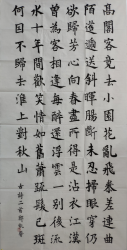 高閣客竟去小園花亂飛參差連曲
陌迢遞送斜暉腸斷未忍掃眼穿仍
欲歸芳心向春盡所得是沾衣江漢
曾為客相逢每醉還浮雲一別後流
水十年間歡笑情如舊蕭疏鬢已斑
何因不歸去淮上對秋山
古詩二首